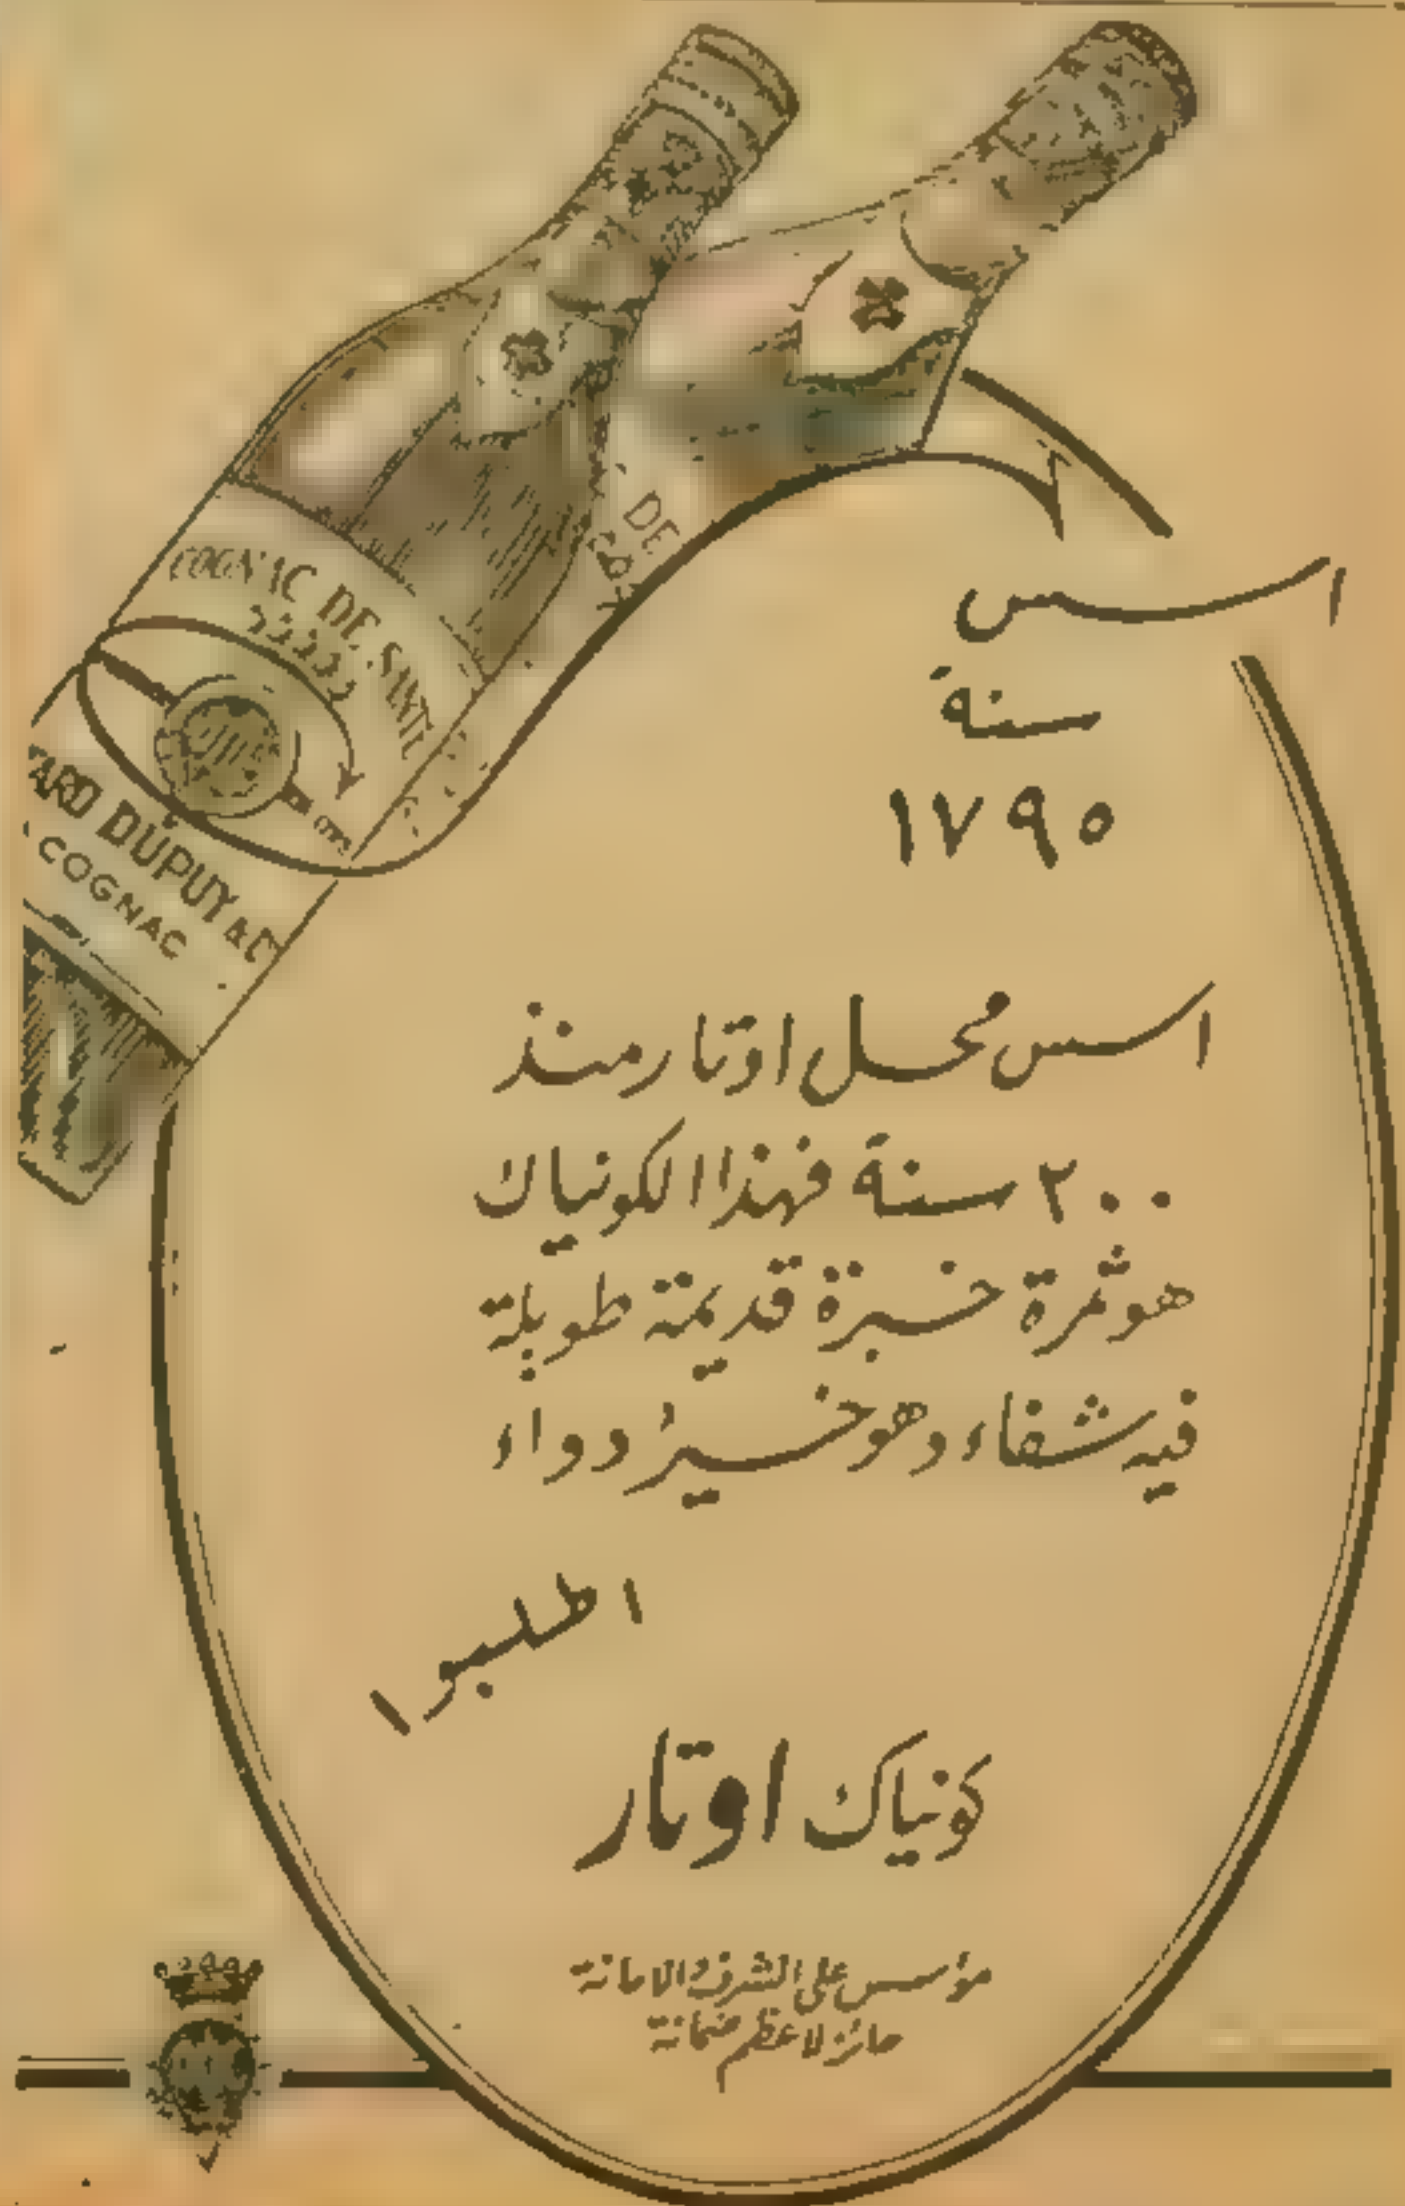 DE
COGNAC DE SANTÉ
ARD DUPUY & Co
COGNAC
اسس
سنة
١٧٩٥
اسس محل اوتار منذ
٢٠٠ سنة فهذا الكونياك
هو ثمرة خبرة قديمة طويلة
فيه شفاء وهو خير دواء
اطلبوا
كونياك اوتار
مؤسس على الشرف والامانة
حائز لاعظم ضمانة